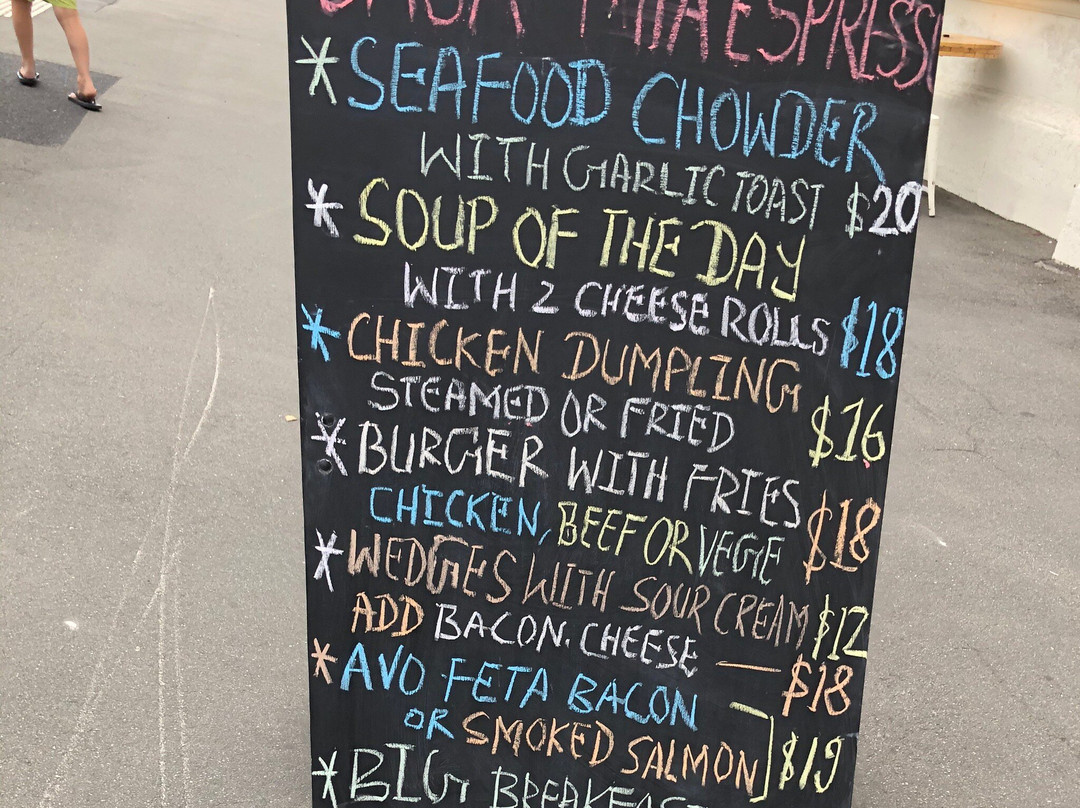 ESPRESS
*SEAFOOD CHOWDER
WITH GARLIC TOAST $20
*SOUP OF THE DAY
WITH 2 CHEESE ROLLS $18
*CHICKEN DUMPLING
STEAMED OR FRIED $16
*BURGER WITH FRIES
CHICKEN, BEEF OR VEGIE $18
*WEDGES WITH SOUR CREAM $12
ADD BACON. CHEESE — $18
*AVO FETA BACON
OR SMOKED SALMON ] $19
*BIG BREAKFAS